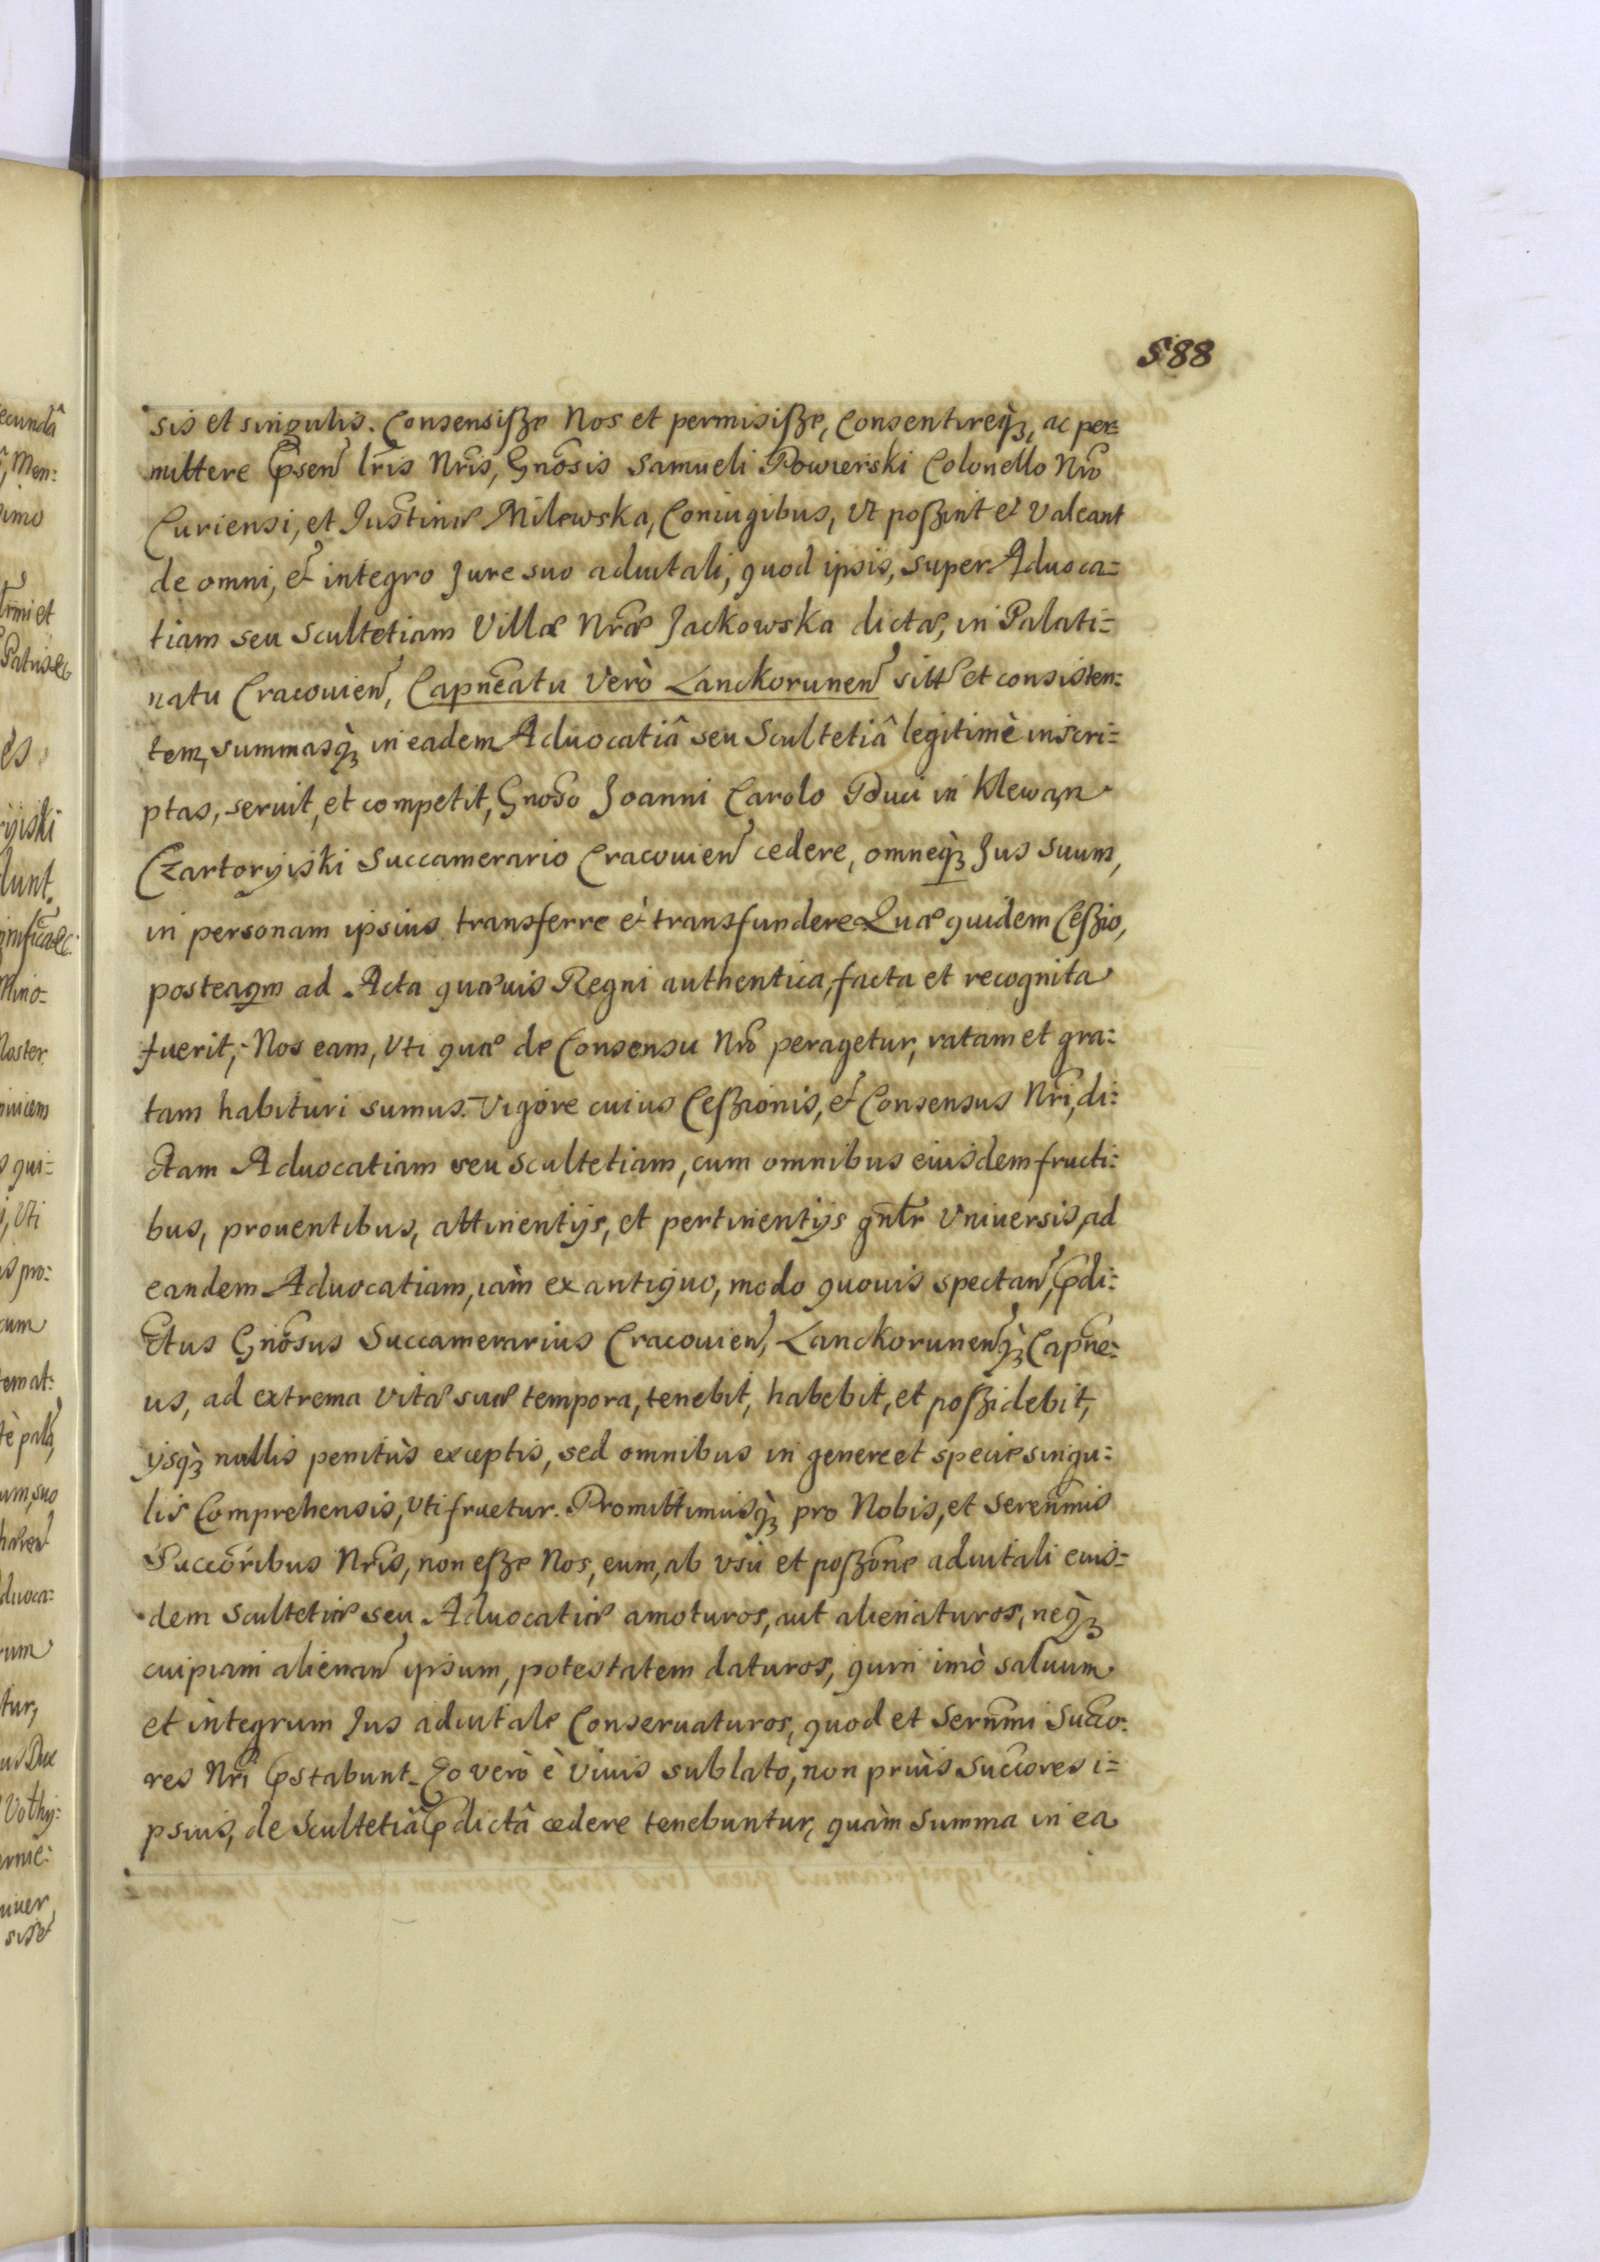 588
sis et singulis. Consensiße Nos et permisiße, Consentireq3, ac per=
mittere Psen Lris Nris, Gnosis Samueli Powierski Colonello Nro
Curiensi, et Justinæ Milewska, Coniugibus, Vt poßint et Valeant
de omni, et integro Jure suo aduitali, quod ipsis, super Aduoca=
tiam seu Scultetiam Villæ Nræ Jackowska dictæ, in Palati=
natu Cracouien, Capneatu Verò Lanckorunen sitt et consisten:
tem, summasq3 in eadem Aduocatiâ seu Scultetiâ legitimè inscri=
ptas, seruit, et competit, Gnoso Joanni Carolo Duci in Klewan
Czartoryiski Succamerario Cracouien cedere, omneq3 Jus suum,
in personam ipsius transferre et transfundere. Quæ quidem Ceßio,
posteaqm ad Acta quæuis Regni authentica, facta et recognita
fuerit, Nos eam, Vti quæ de Consensu Nro peragetur, ratam et gra=
tam habituri sumus. Vigore cuius Ceßionis, et Consensus Nri, di=
ctam Aduocatiam seu scultetiam, cum omnibus eiusdem fructi:
bus, prouentibus, attinentijs, et pertinentijs gnlr Vniuersis, ad
eandem Aduocatiam, iam ex antiquo, modo quouis spectan, Pdi=
ctus Gnosus Succamerarius Cracouien, Lanckorunenq3 Capne=
us, ad extrema Vitæ suæ tempora, tenebit, habebit, et poßidebit,
ijsq3 nullis penitùs exceptis, sed omnibus in genere et specie singu=
lis Comprehensis, Vti fruetur. Promittimusq3 pro Nobis, et Serenmis
Succoribus Nris, non eße Nos, eum, ab vsu et poßone aduitali eius=
dem Scultetiæ seu Aduocatiæ amoturos, aut alienaturos, neq3
cuipiam alienan ipsum, potestatem daturos, quin imò saluum
et integrum Jus aduitale Conseruaturos, quod et Sernmi Succo:
res Nri Pstabunt. Eo verò è Viuis sublato, non priùs Succores i=
psius, de Scultetiâ Pdictâ cedere tenebuntur, quàm Summa in ea